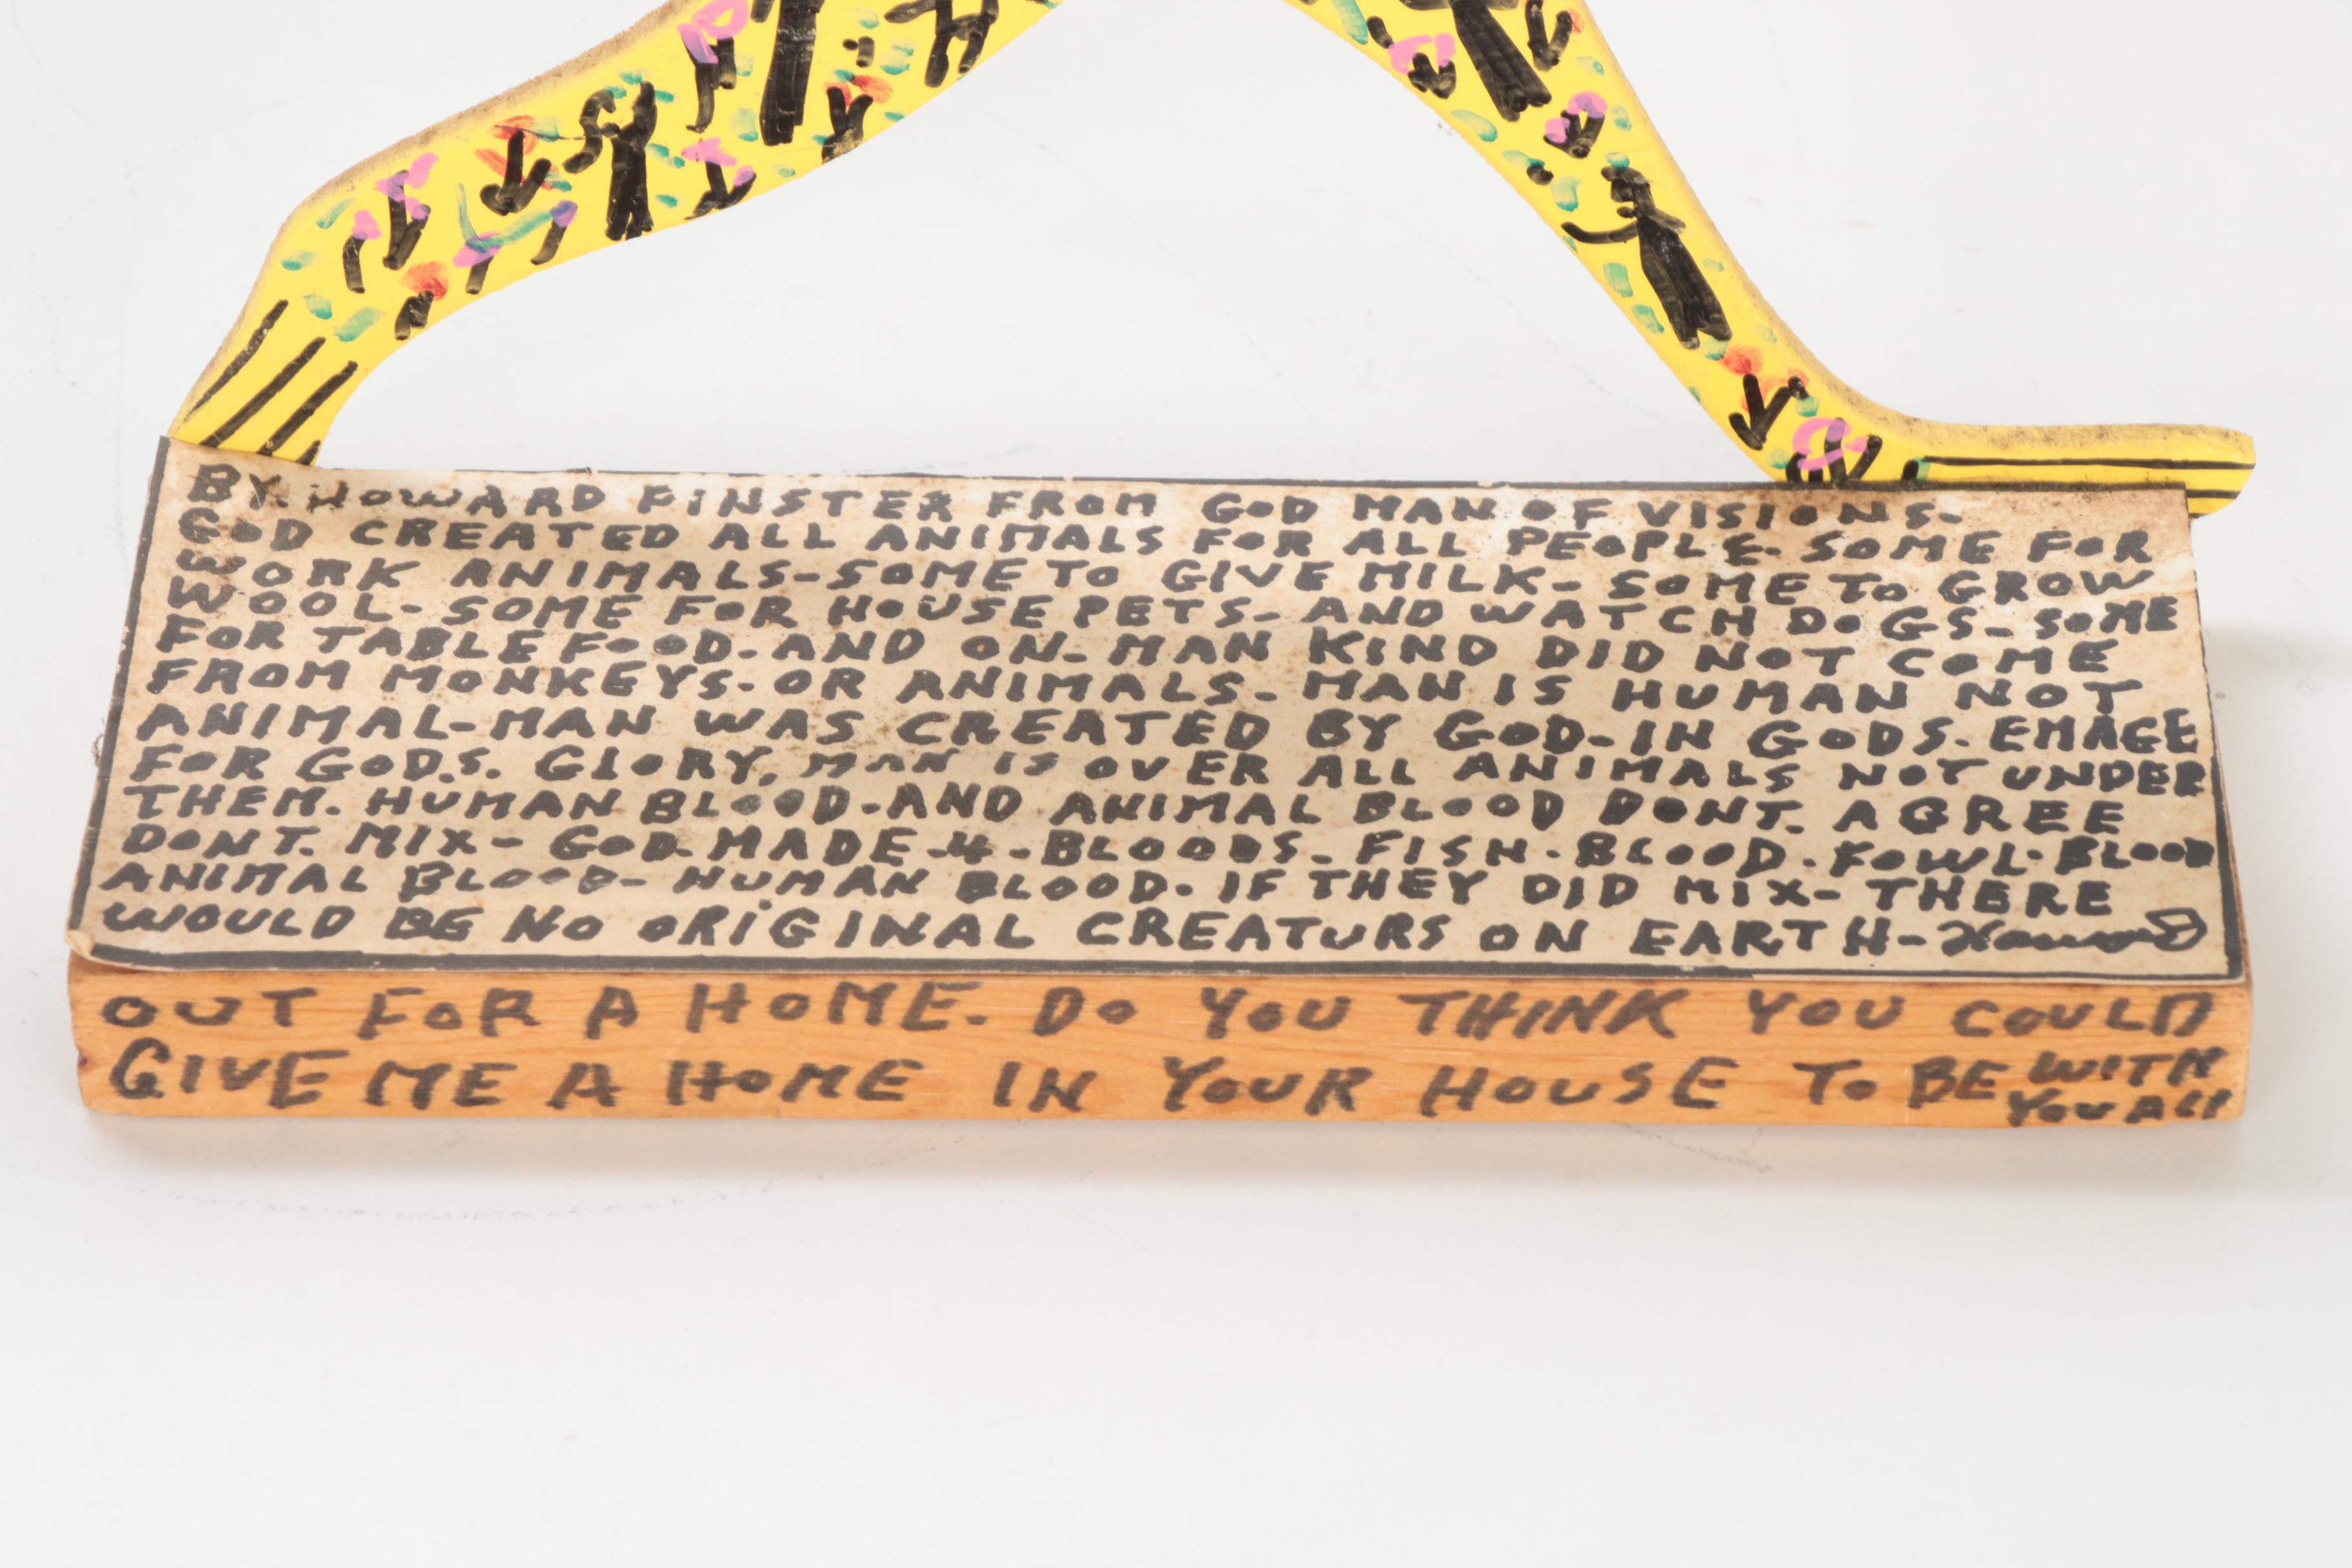 BY. HOWARD FINSTER FROM GOD MAN OF VISIONS.
GOD CREATED ALL ANIMALS FOR ALL PEOPLE. SOME FOR
WORK ANIMALS-SOME TO GIVE MILK- SOME TO GROW
WOOL- SOME FOR HOUSE PETS- AND WATCH DOGS- SOME
FOR TABLE FOOD. AND ON- MAN KIND DID NOT COME
FROM MONKEYS. OR ANIMALS- MAN IS HUMAN NOT
ANIMAL-MAN WAS CREATED BY GOD-IN GODS. EMAGE
FOR GOD.S. GLORY, MAN IS OVER ALL ANIMALS NOT UNDER
THEM. HUMAN BLOOD-AND ANIMAL BLOOD DONT. AGREE
DONT. MIX- GOD-MADE-4-BLOODS- FISH-BLOOD. FOWL-BLOOD
ANIMAL BLOOD- HUMAN BLOOD. IF THEY DID MIX- THERE
WOULD BE NO ORIGINAL CREATURS ON EARTH- Howard
OUT FOR A HOME. DO YOU THINK YOU COULD
GIVE ME A HOME IN YOUR HOUSE TO BE WITH
YOU ALL